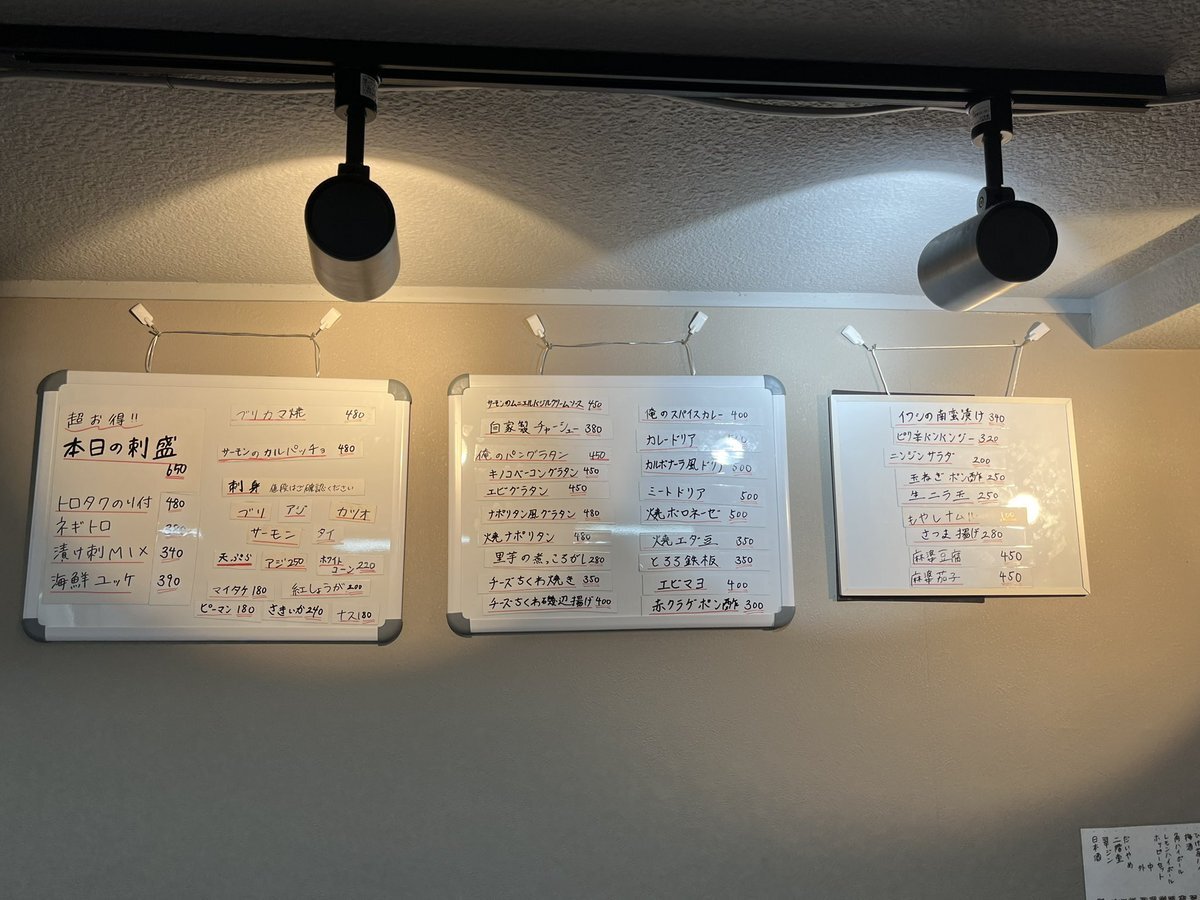 超お得!!
本日の刺盛
650
トロタクのり付 480
ネギトロ
漬け刺MIX 340
海鮮ユッケ 390
ブリカマ焼 480
サーモンのカルパッチョ 480
刺身 値段はご確認ください
ブリ アジ カツオ
サーモン タイ
天ぷら アジ250 ホワイトコーン220
マイタケ180 紅しょうが200
ピーマン180 さきいか240 ナス180
サーモンのムニエルバジルクリームソース 450
自家製チャーシュー 380
俺のパングラタン 450
キノコベーコングラタン 450
エビグラタン 450
ナポリタン風グラタン 480
焼ナポリタン 480
里芋の煮ころがし 280
チーズちくわ焼き 350
チーズちくわ磯辺揚げ 400
俺のスパイスカレー 400
カレードリア
カルボナーラ風ドリア 500
ミートドリア 500
焼ボロネーゼ 500
焼エダ豆 350
とろろ鉄板 350
エビマヨ 400
赤クラゲポン酢 300
イワシの南蛮漬け 390
ピリ辛バンバンジー 320
ニンジンサラダ 200
玉ねぎポン酢 250
生ニラ玉 250
もやしナムル
さつま揚げ 280
麻婆豆腐 450
麻婆茄子 450
梅酒
角ハイボール
レモンハイボール
ホッピーセット
中
外
だいやめ
二階堂
翠ジン
日本酒